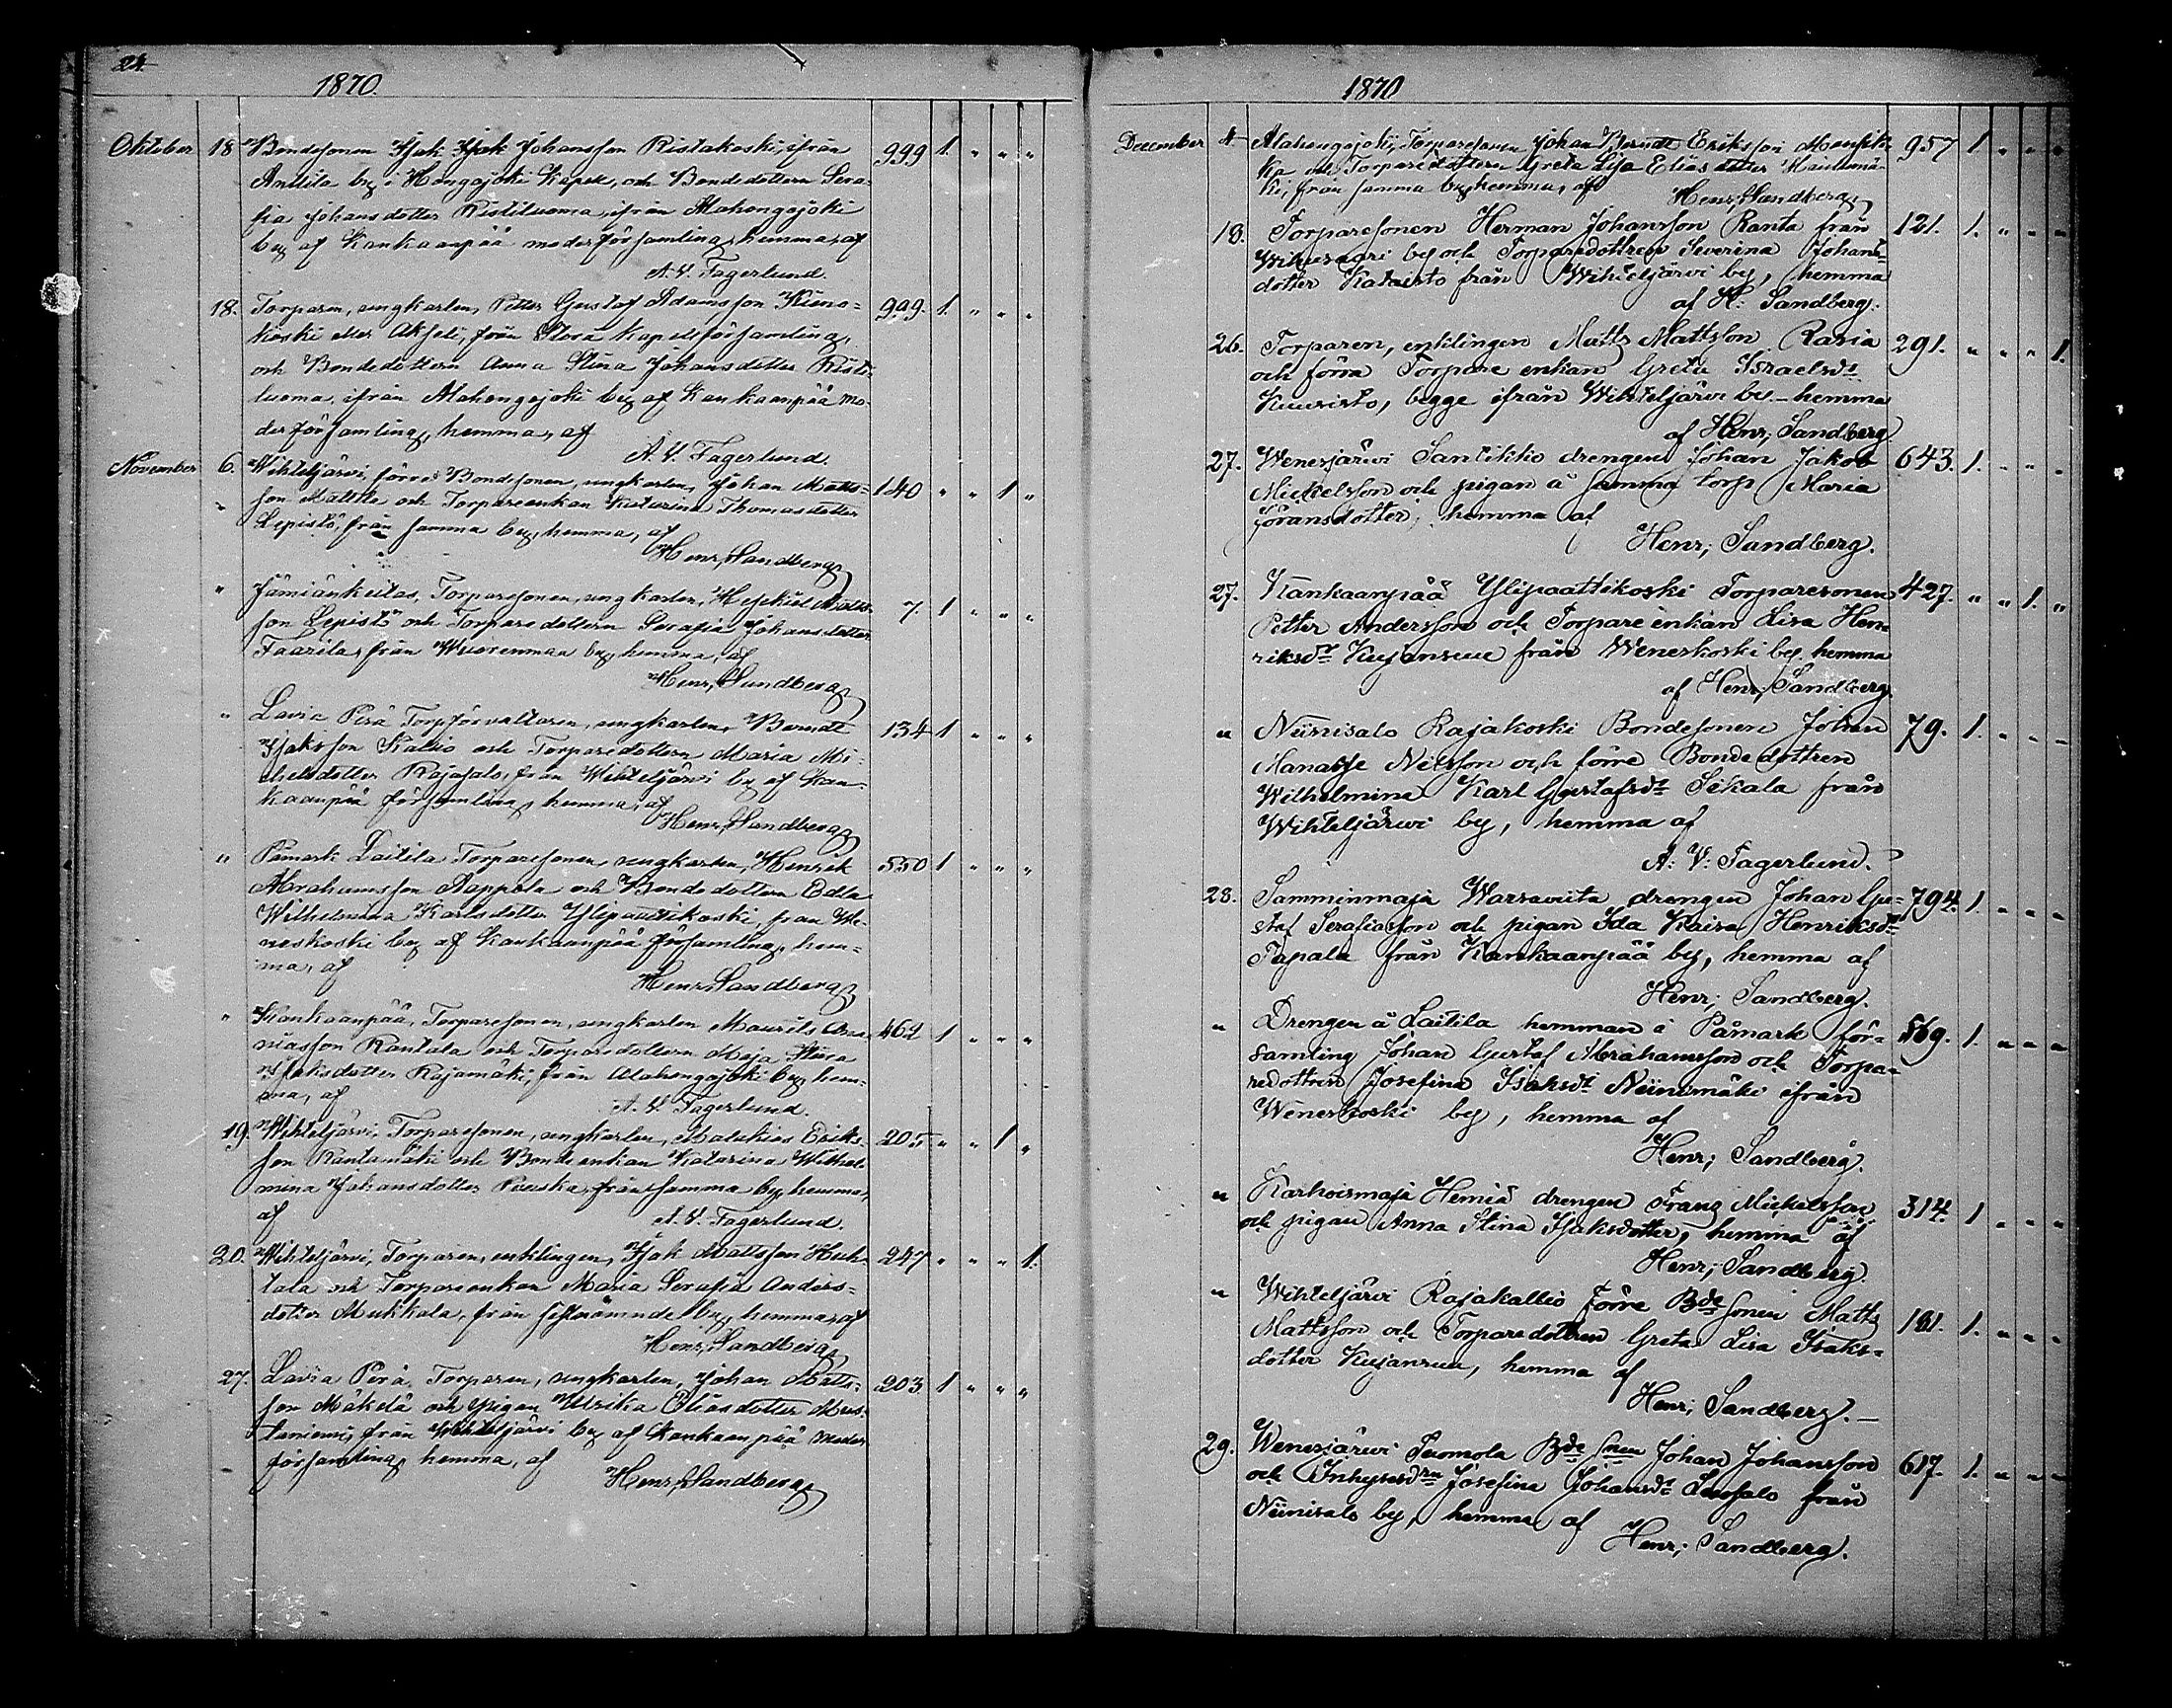 24.
1870.
Oktober 18 Bondesonen Isak Isak Johansson Ristakoski, ifrån 999 1. " " "
Anttila by i Hongojoki Kapell, och Bondedottern Sera-
fia Johansdotter Ristiluoma, ifrån Alahongojoki
by af Kankaanpää moderförsamling, hemma, af
A. V. Fagerlund.
18. Torparen, ungkarlen, Petter Gustaf Adamsson 999. 1. " " "
koski eller från Stora Kapellförsamling,
och Bondedottern Anna Stina Johansdotter Risti-
luoma, ifrån Alahongojoki by af Kankaanpää mo-
derförsamling, hemma, af
A. V. Fagerlund.
November 6. Wihteljärvi, förre Bondesonen, ungkarlen, Johan Matts- 140 " " 1 "
son Mattila och Torpareenkan Katarina Thomasdotter
Lepistö, från samma by, hemma, af
Henr; Sandberg
" Jämiänkeitas, Torparesonen, ungkarlen, Heskiel Matts- 7. 1 " " "
son Lepistö och Torparedottern Serafia Johansdotter
Faarila, från Wuorenmaa by, hemma, af
Henr; Sandberg
" Lavia Perä Torpförvaltaren, ungkarlen, Berndt 134 1 " " "
Isaksson Kallio och Torparedottern Maria Mi-
chelsdotter Rajasalo, från Wihteljärvi by af Kan-
kaanpää församling, hemma, af
Henr; Sandberg
" Påmark Laitila Torparesonen, ungkarlen, Henrik 550 1 " " "
Abrahamsson Aappola och Bondedottern Edla
Wilhelmina Karlsdotter Ylipaattikoski, från We-
neskoski by af Kankaanpää församling, hem-
ma, af
Henr; Sandberg
" Kankaanpää, Torparesonen, ungkarlen Maurits Ana- 462 1 " " "
niasson Rantala och Torparedottern Maja Stina
Isaksdotter Rajamäki, från Alahongojoki by, hem-
ma, af
A. V. Fagerlund.
19. Wihteljärvi, Torparesonen, ungkarlen, Malakias Eriks- 205 " " 1 "
son Rantamäki och Bondeenkan Katarina Wilhel-
mina Johansdotter Pouska, från samma by, hemma,
af
A. V. Fagerlund.
20. Wihteljärvi, Torparen, enklingen, Isak Mattsson Huh- 247 " " " 1.
tala och Torpareenkan Maria Serafia Anders-
dotter Mukkala, från sistnämnde by, hemma, af
Henr; Sandberg
27. Lavia Perä, Torparen, ungkarlen, Johan Matts- 203 1 " " "
son Mäkelä och pigan Ulrika Eliasdotter Mus-
taniemi, från Wihteljärvi by af Kankaanpää moder-
församling, hemma, af
Henr; Sandberg
1870
December 4. Alahongojoki, Torparesonen Johan Berndt Eriksson 957 1 " " "
och Torparedottern Greta Lisa Eliasdotter
från samma by, hemma, af
Henr; Sandberg
18. Torparesonen Herman Johansson Ranta från 121. 1. " " "
by och Torparedottren Severina Johans-
dotter Katairto från Wihteljärvi by, hemma
af H: Sandberg.
26. Torparen, enklingen Matts Mattsson Raria 291. " " " 1.
och förra Torpare enkan Greta Israelsdr
Kuuristo, begge ifrån Wihteljärvi by. - hemma
af Henr; Sandberg
27. Wenesjärvi Santikko drengen Johan Jakob 643. 1. " " "
Mickelsson och pigan å samma torp Maria
Göransdotter, hemma af
Henr; Sandberg.
27. Kankaanpää Ylipaattikoski Torparesonen 427. " " 1. "
Petter Andersson och Torpare enkan Lisa Hen-
riksdr Kujansuu från Weneskoski by. hemma
af Henr; Sandberg
" Niinisalo Rajakoski Bondesonen Johan 79. 1. " " "
Manasse Nilsson och förre Bondedottren
Wilhelmina Karl Gustafsdr Sikala från
Wihteljärvi by, hemma af
A: V: Fagerlund.
28. Samminmaja Warsavuita drengen Johan Gu- 794. 1. " " "
staf Serafiasson och pigan Ida Kaisa Henriksdr
Tapala från Kankaanpää by, hemma af
Henr; Sandberg.
" Drengen å Laitila hemman i Påmark för- 569. 1. " " "
samling Johan Gustaf Abrahamsson och Torpa-
redottren Josefina Isaksdr Niinimäki ifrån
Weneskoski by, hemma af
Henr; Sandberg.
" Karhoismaja Hemiä drengen Frans Mickelsson 314. 1 " " "
och pigan Anna Stina Isaksdotter, hemma af
Henr; Sandberg.
" Wihteljärvi Rajakallio förre Bdesonen Matts 181. 1. " " "
Mattsson och Torparedottren Greta Lisa Isaks-
dotter Kujansuu, hemma af
Henr; Sandberg. -
29. Wenesjärvi Tuomola Bdesonen Johan Johansson 617. 1. " " "
och Inhysesdrn Josefina Johansdr Leusalo från
Niinisalo by, hemma af
Henr; Sandberg.